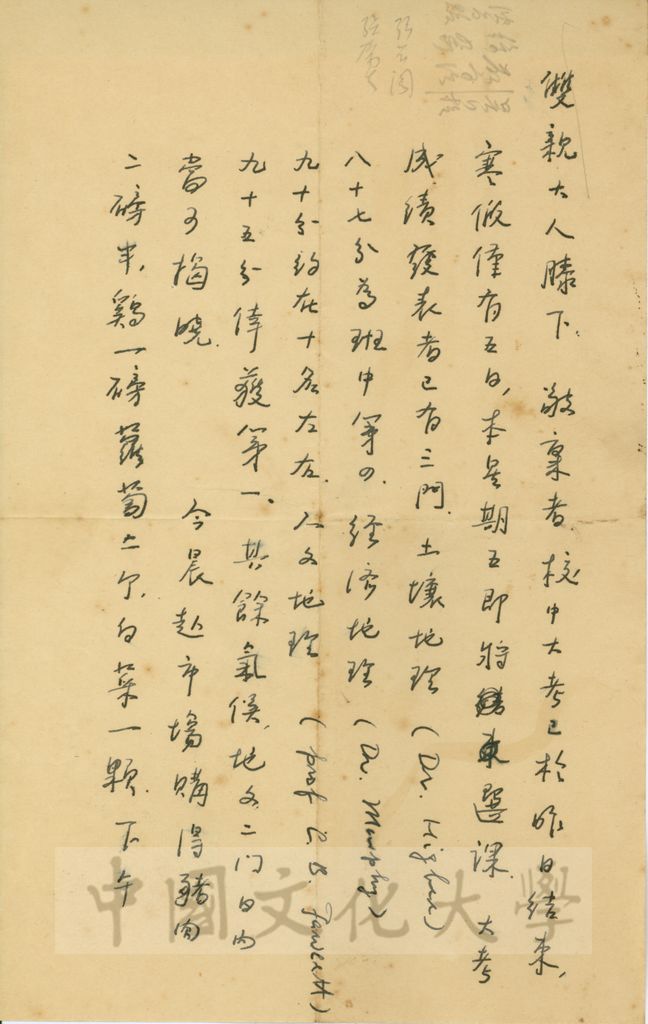 雙親大人膝下 敬稟者 校中大考已於昨日結束,
寒假僅有五日, 本星期五即將選課. 大考
成績發表者已有三門. 土壤地理 (Dr.
八十七分為班中第四. 經濟地理 (Dr. Murphy)
九十分約在十名左右. 人文地理 (prof C. B. Fawcett)
九十五分倖獲第一. 其餘氣候, 地文二门日內
當可揭曉. 今晨赴市場購得豬肉
二磅半, 鷄一磅 蘿蔔二个, 白菜一顆. 下午
中國文化大學